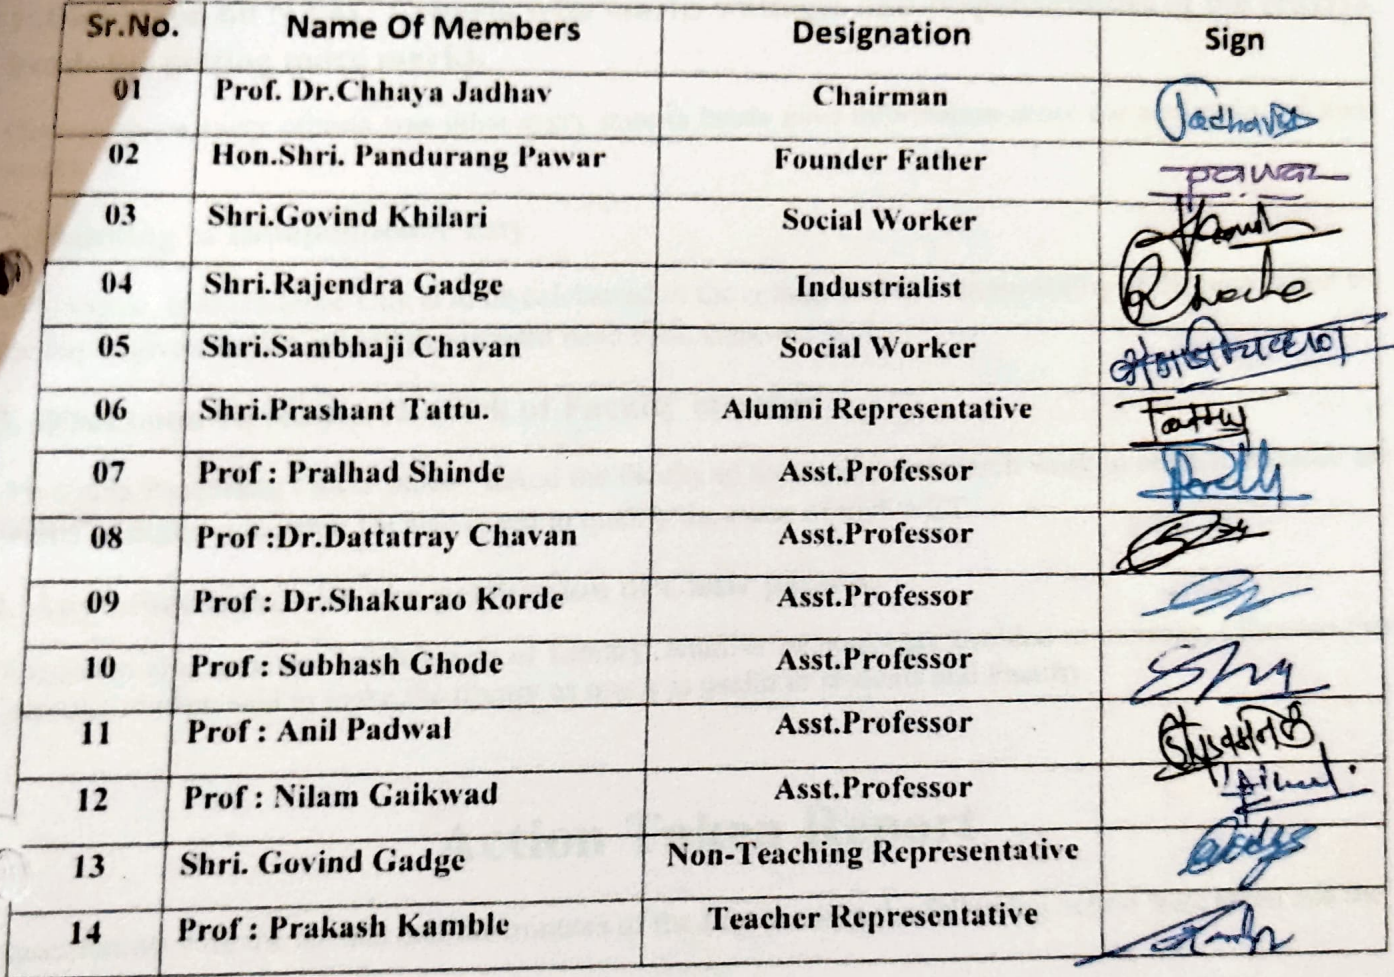 Sr.No. Name Of Members Designation Sign
01 Prof. Dr.Chhaya Jadhav Chairman Jadhav
02 Hon.Shri. Pandurang Pawar Founder Father pawar
03 Shri.Govind Khilari Social Worker
04 Shri.Rajendra Gadge Industrialist
05 Shri.Sambhaji Chavan Social Worker
06 Shri.Prashant Tattu. Alumni Representative Tattu
07 Prof : Pralhad Shinde Asst.Professor
08 Prof :Dr.Dattatray Chavan Asst.Professor
09 Prof : Dr.Shakurao Korde Asst.Professor
10 Prof : Subhash Ghode Asst.Professor
11 Prof : Anil Padwal Asst.Professor
12 Prof : Nilam Gaikwad Asst.Professor
13 Shri. Govind Gadge Non-Teaching Representative
14 Prof : Prakash Kamble Teacher Representative